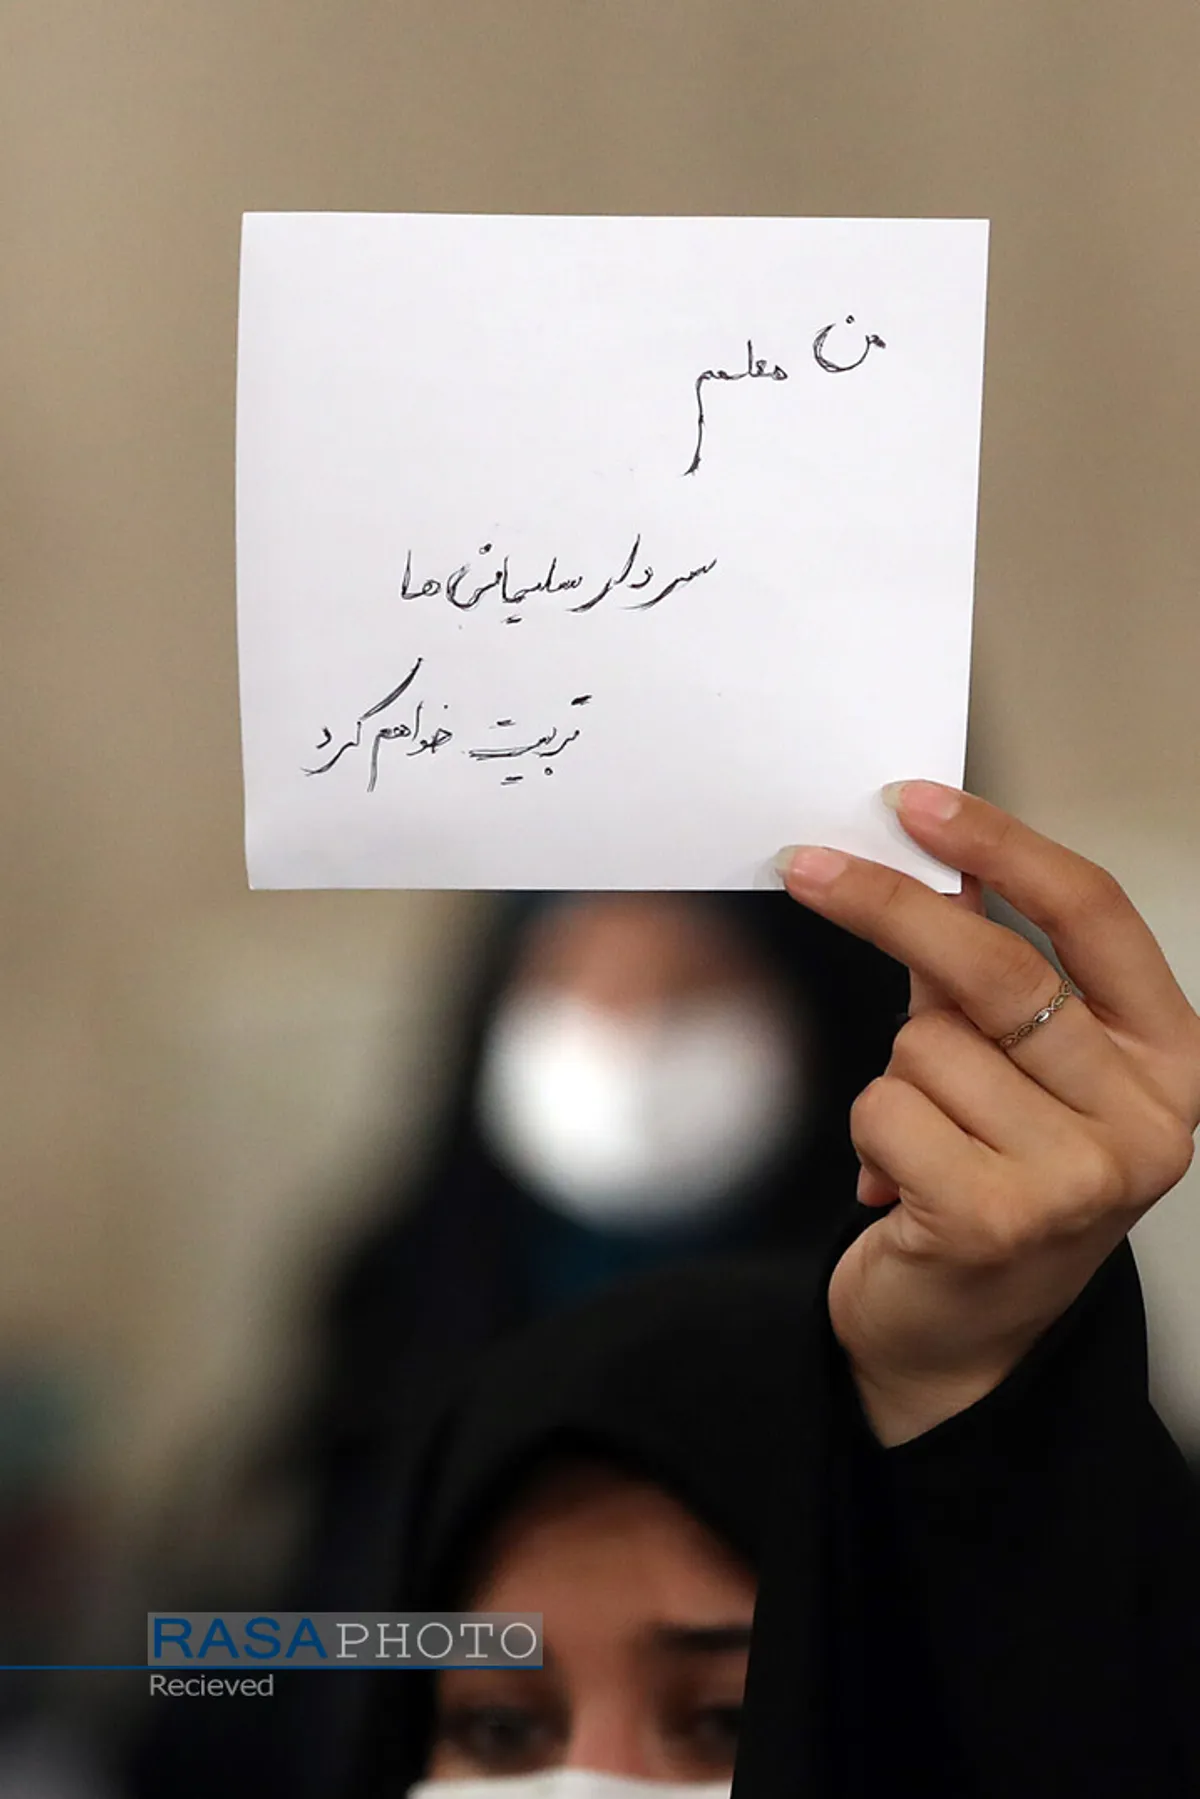 من معلمم
سردار سلیمانی ها
تربیت خواهم کرد
RASAPHOTO
Recieved